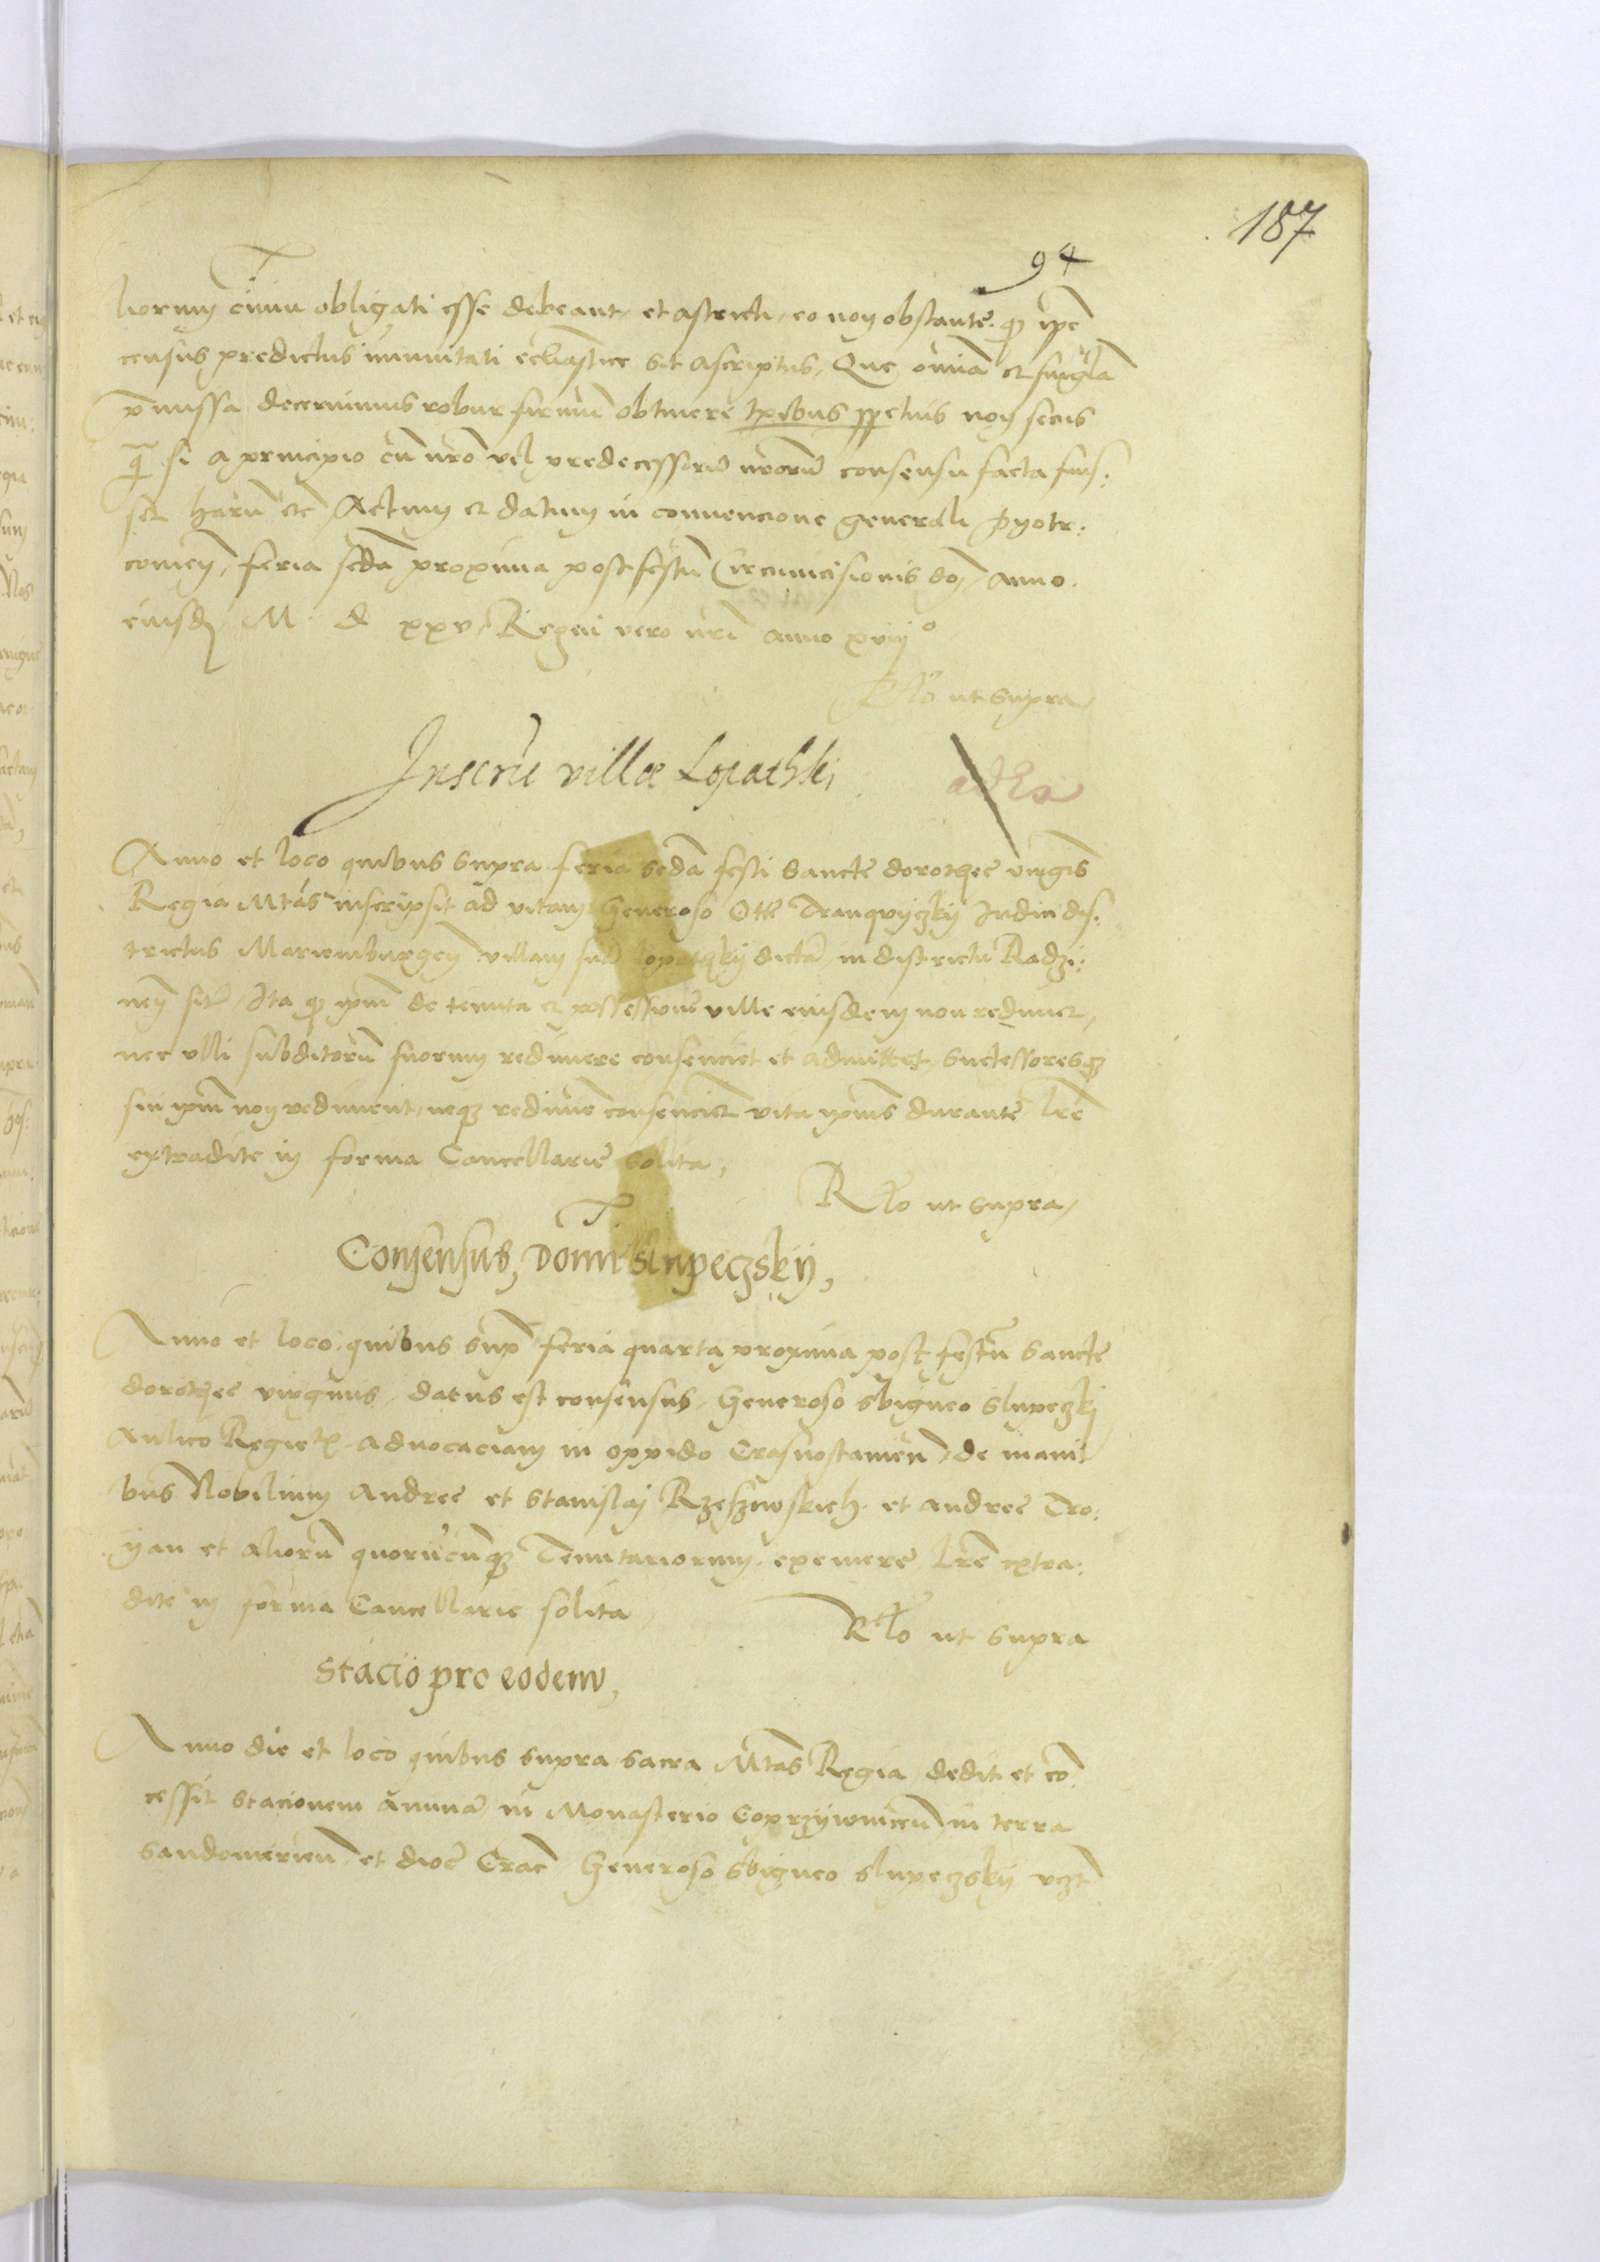 187
94
liorum civiu obligati esse debeant, et astricti, eo non obstante. qz ipe
census predictus imunitati eccliastice sit ascriptus, Que omnia et singla
pmissa decernimus robur firmu obtinere tpibus ppetuis non secus
qa si a principio cu nro vel predecessoru nrorum consensu facta fuis:
set haru etc Actum et datum in convencione generali pyotr:
comien, feria scda proxima post festu Circumcisionis dni, anno
eiusdem M d xxv, Regni vero nri anno xviij°
Rlo ut supra,
Inscrio villæ Lopathki
Anno et loco quibus supra feria scda festi sancte dorothee virgis
Regia Mtas inscripsit ad vitam Generoso Otte Dranqvyczky Iudici dis:
trictus Mariemburgen villam sua lopatqky dicta, in districtu Radzi:
nen sita, Ita qz ipm de tenuta et possessione ville eiusdem non redimet,
nec ulli subditoru suorum redimere consenciet et admittet, successoresqz
sui ipm non rediment, neqz redimere consencient vita ipius durante lre
extradite in forma Cancellarie solita,
Rlo ut supra,
Consensus, domi slupeczskij,
Anno et loco, quibus sup feria quarta proxima post festu sancte
dorothee virginis, datus est consensus, Generoso sbigneo slupeczki
Aulico Regie etc advocaciam in oppido Crasnostamien, de mani
bus Nobilium Andree et stanislaj Rzeszowskich, et andree Tro:
yan et alioru quorucunqz Tenutariorum, eximere, lre extra:
dite in forma Cancellarie solita
Rlo ut supra
Stacio pro eodem,
Anno die et loco quibus supra sacra Mtas Regia, dedit et co
cessit stacionem annua, in Monasterio Coprzywnicen in terra
sandomirien, et dioc Crac Generoso sbigneo slupeczskij